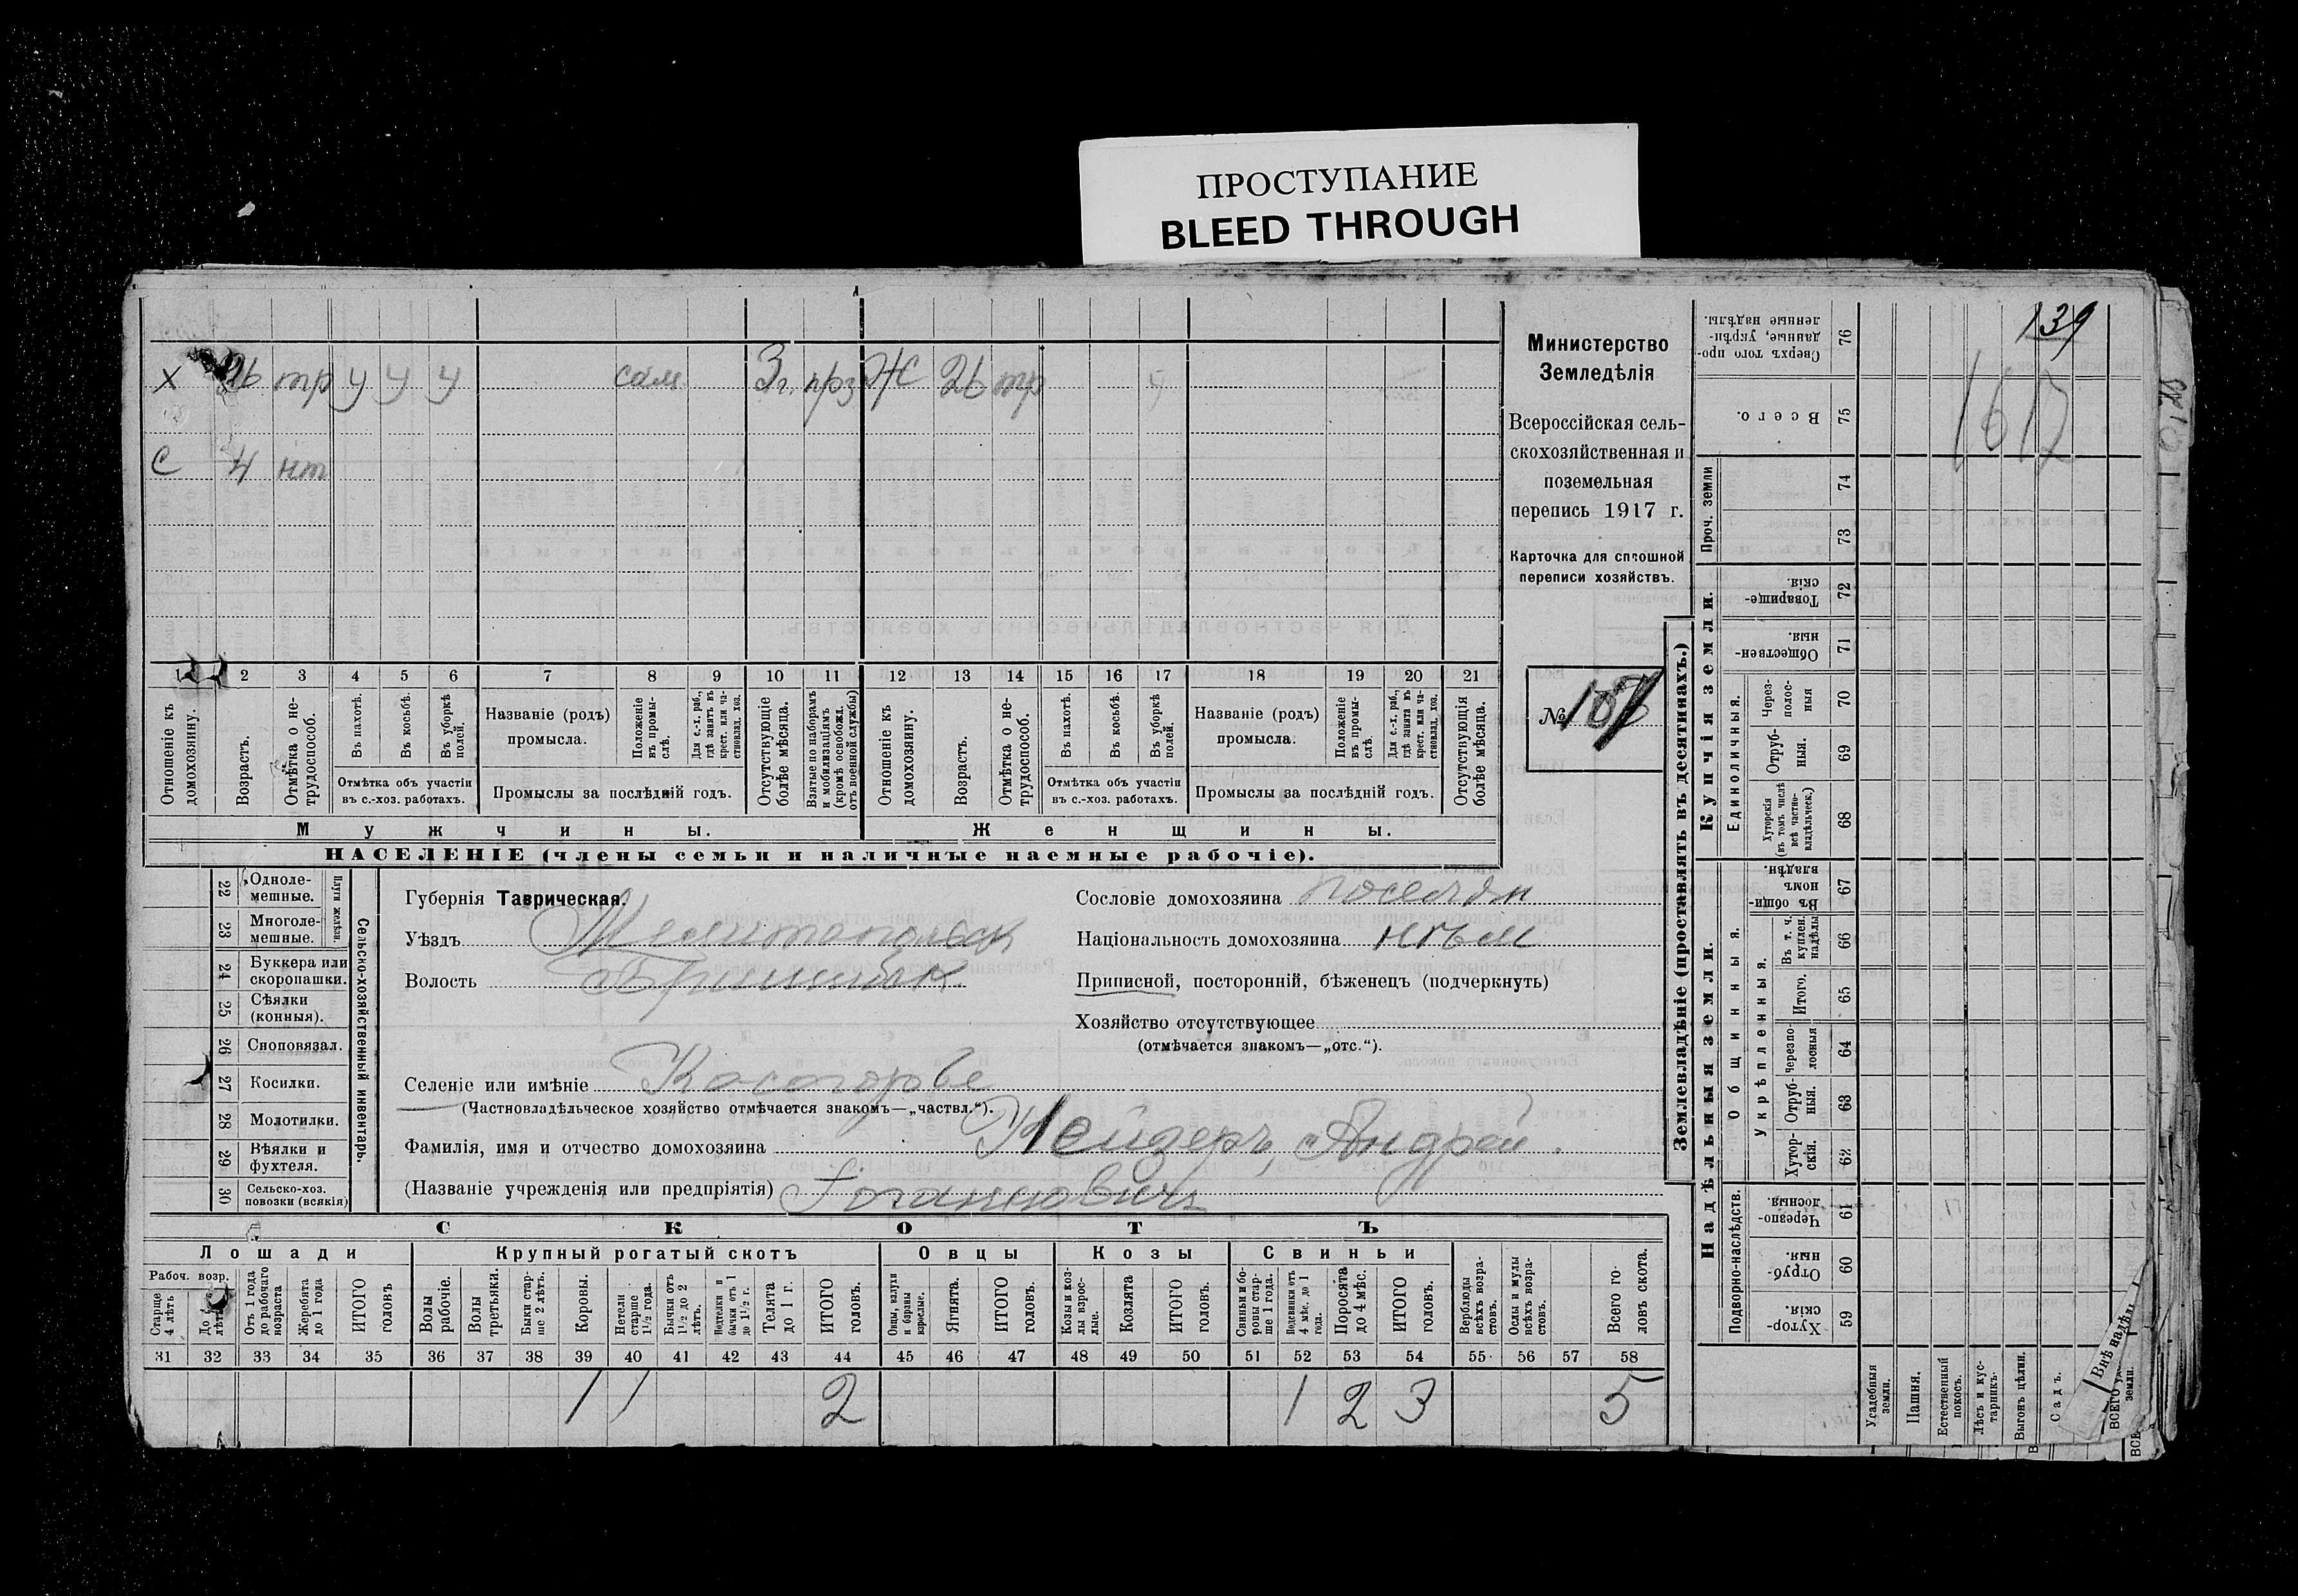 ПРОСТУПАНИЕ
BLEED THROUGH
139
1617
х 26 тр у у у сам 3 г. прз Ж 26 тр у
с 4 нт
1 2 3 4 5 6 7 8 9 10 11 12 13 14 15 16 17 18 19 20 21
Отношеніе къ домохозяину.
Возрастъ.
Отмѣтка о не-трудоспособ.
Въ пахотѣ.
Въ косьбѣ.
Въ уборкѣ полей.
Отмѣтка объ участіи въ с.-хоз. работахъ.
Названіе (родъ) промысла.
Положеніе въ промы-слѣ.
Для с.-х. раб., гдѣ занятъ въ крест. или ча-ствовлад. хоз.
Промыслы за послѣдній годъ.
Отсутствующіе болѣе мѣсяца.
Взятые по наборамъ и мобилизаціямъ (кромѣ освобожд. отъ военной службы)
Отношеніе къ домохозяину.
Возрастъ.
Отмѣтка о не-трудоспособ.
Въ пахотѣ.
Въ косьбѣ.
Въ уборкѣ полей.
Отмѣтка объ участіи въ с.-хоз. работахъ.
Названіе (родъ) промысла.
Положеніе въ промы-слѣ.
Для с.-х. раб., гдѣ занята въ крест. или ча-ствовлад. хоз.
Промыслы за послѣдній годъ.
Отсутствующія болѣе мѣсяца.
Мужчины.
Женщины.
НАСЕЛЕНІЕ (члены семьи и наличные наемные рабочіе).
Министерство
Земледѣлія
Всероссійская сель-
скохозяйственная и
поземельная
перепись 1917 г.
Карточка для сплошной
переписи хозяйствъ.
№ 187
22 Одноле-мешные.
23 Многоле-мешные.
Плуги желѣзн.
24 Буккера или скоропашки.
25 Сѣялки (конныя).
26 Сноповязал.
27 Косилки.
28 Молотилки.
29 Вѣялки и фухтеля.
30 Сельско-хоз. повозки (всякія)
Сельско-хозяйственный инвентарь.
Губернія Таврическая.
Уѣздъ Мелитопольск
Волость Пришиб
Селеніе или имѣніе Косогорье
(Частновладѣльческое хозяйство отмѣчается знакомъ—„частвл.“).
Фамилія, имя и отчество домохозяина Нейдеръ, Андрей
(Названіе учрежденія или предпріятія) Іоганновичъ
Сословіе домохозяина поселян
Національность домохозяина нѣм
Приписной, посторонній, бѣженецъ (подчеркнуть)
Хозяйство отсутствующее
(отмѣчается знакомъ—„отс.“).
СКОТЪ
Лошади
Рабоч. возр.
Старше 4 лѣтъ
До 4 лѣтъ
Отъ 1 года до рабочаго возраста
Жеребята до 1 года
ИТОГО головъ
Крупный рогатый скотъ
Волы рабочіе.
Волы третьяки.
Быки стар-ше 2 лѣтъ.
Коровы.
Нетели старше 1½ года.
Бычки отъ 1½ до 2 лѣтъ.
Подтелки и бычки отъ 1 до 1½ г.
Телята до 1 г.
ИТОГО головъ.
Овцы
Овцы, валухи и бараны взрослые.
Ягнята.
ИТОГО головъ.
Козы
Козы и коз-лы взрос-лые.
Козлята
ИТОГО головъ.
Свиньи
Свиньи и бо-ровы стар-ше 1 года.
Подсвинки отъ 4 мѣс. до 1 года.
Поросята до 4 мѣс.
ИТОГО головъ.
Верблюды всѣхъ возра-стовъ.
Ослы и мулы всѣхъ возра-стовъ.
Всего го-ловъ скота.
31 32 33 34 35 36 37 38 39 40 41 42 43 44 45 46 47 48 49 50 51 52 53 54 55 56 57 58
1 1 2 1 2 3 5
Землевладѣніе (проставлять въ десятинахъ.)
Купчія земли.
Надѣльныя земли.
76 Сверхъ того про-данные, укрѣп-ленные надѣлы.
75 Всего.
Проч. земли
74
73
72 Товарище-скія.
71 Обществен-ныя.
Единоличныя.
70 Через-полос-ныя
69 Отруб-ныя.
68 Хуторскія (въ томъ числѣ всѣ частно-владѣльческ.)
Общинныя.
67 Въ общин-номъ владѣн.
Укрѣпленныя.
66 Въ т. ч. куплен. надѣлы
65 Итого.
64 Черезпо-лосныя
63 Отруб-ныя.
62 Хутор-скія.
Подворно-наслѣдств.
61 Черезпо-лосныя.
60 Отруб-ныя.
59 Хутор-скія.
Усадебныя земли.
Пашня.
Естественный покосъ.
Лѣсъ и кус-тарникъ.
Выгонъ цѣлин.
Садъ.